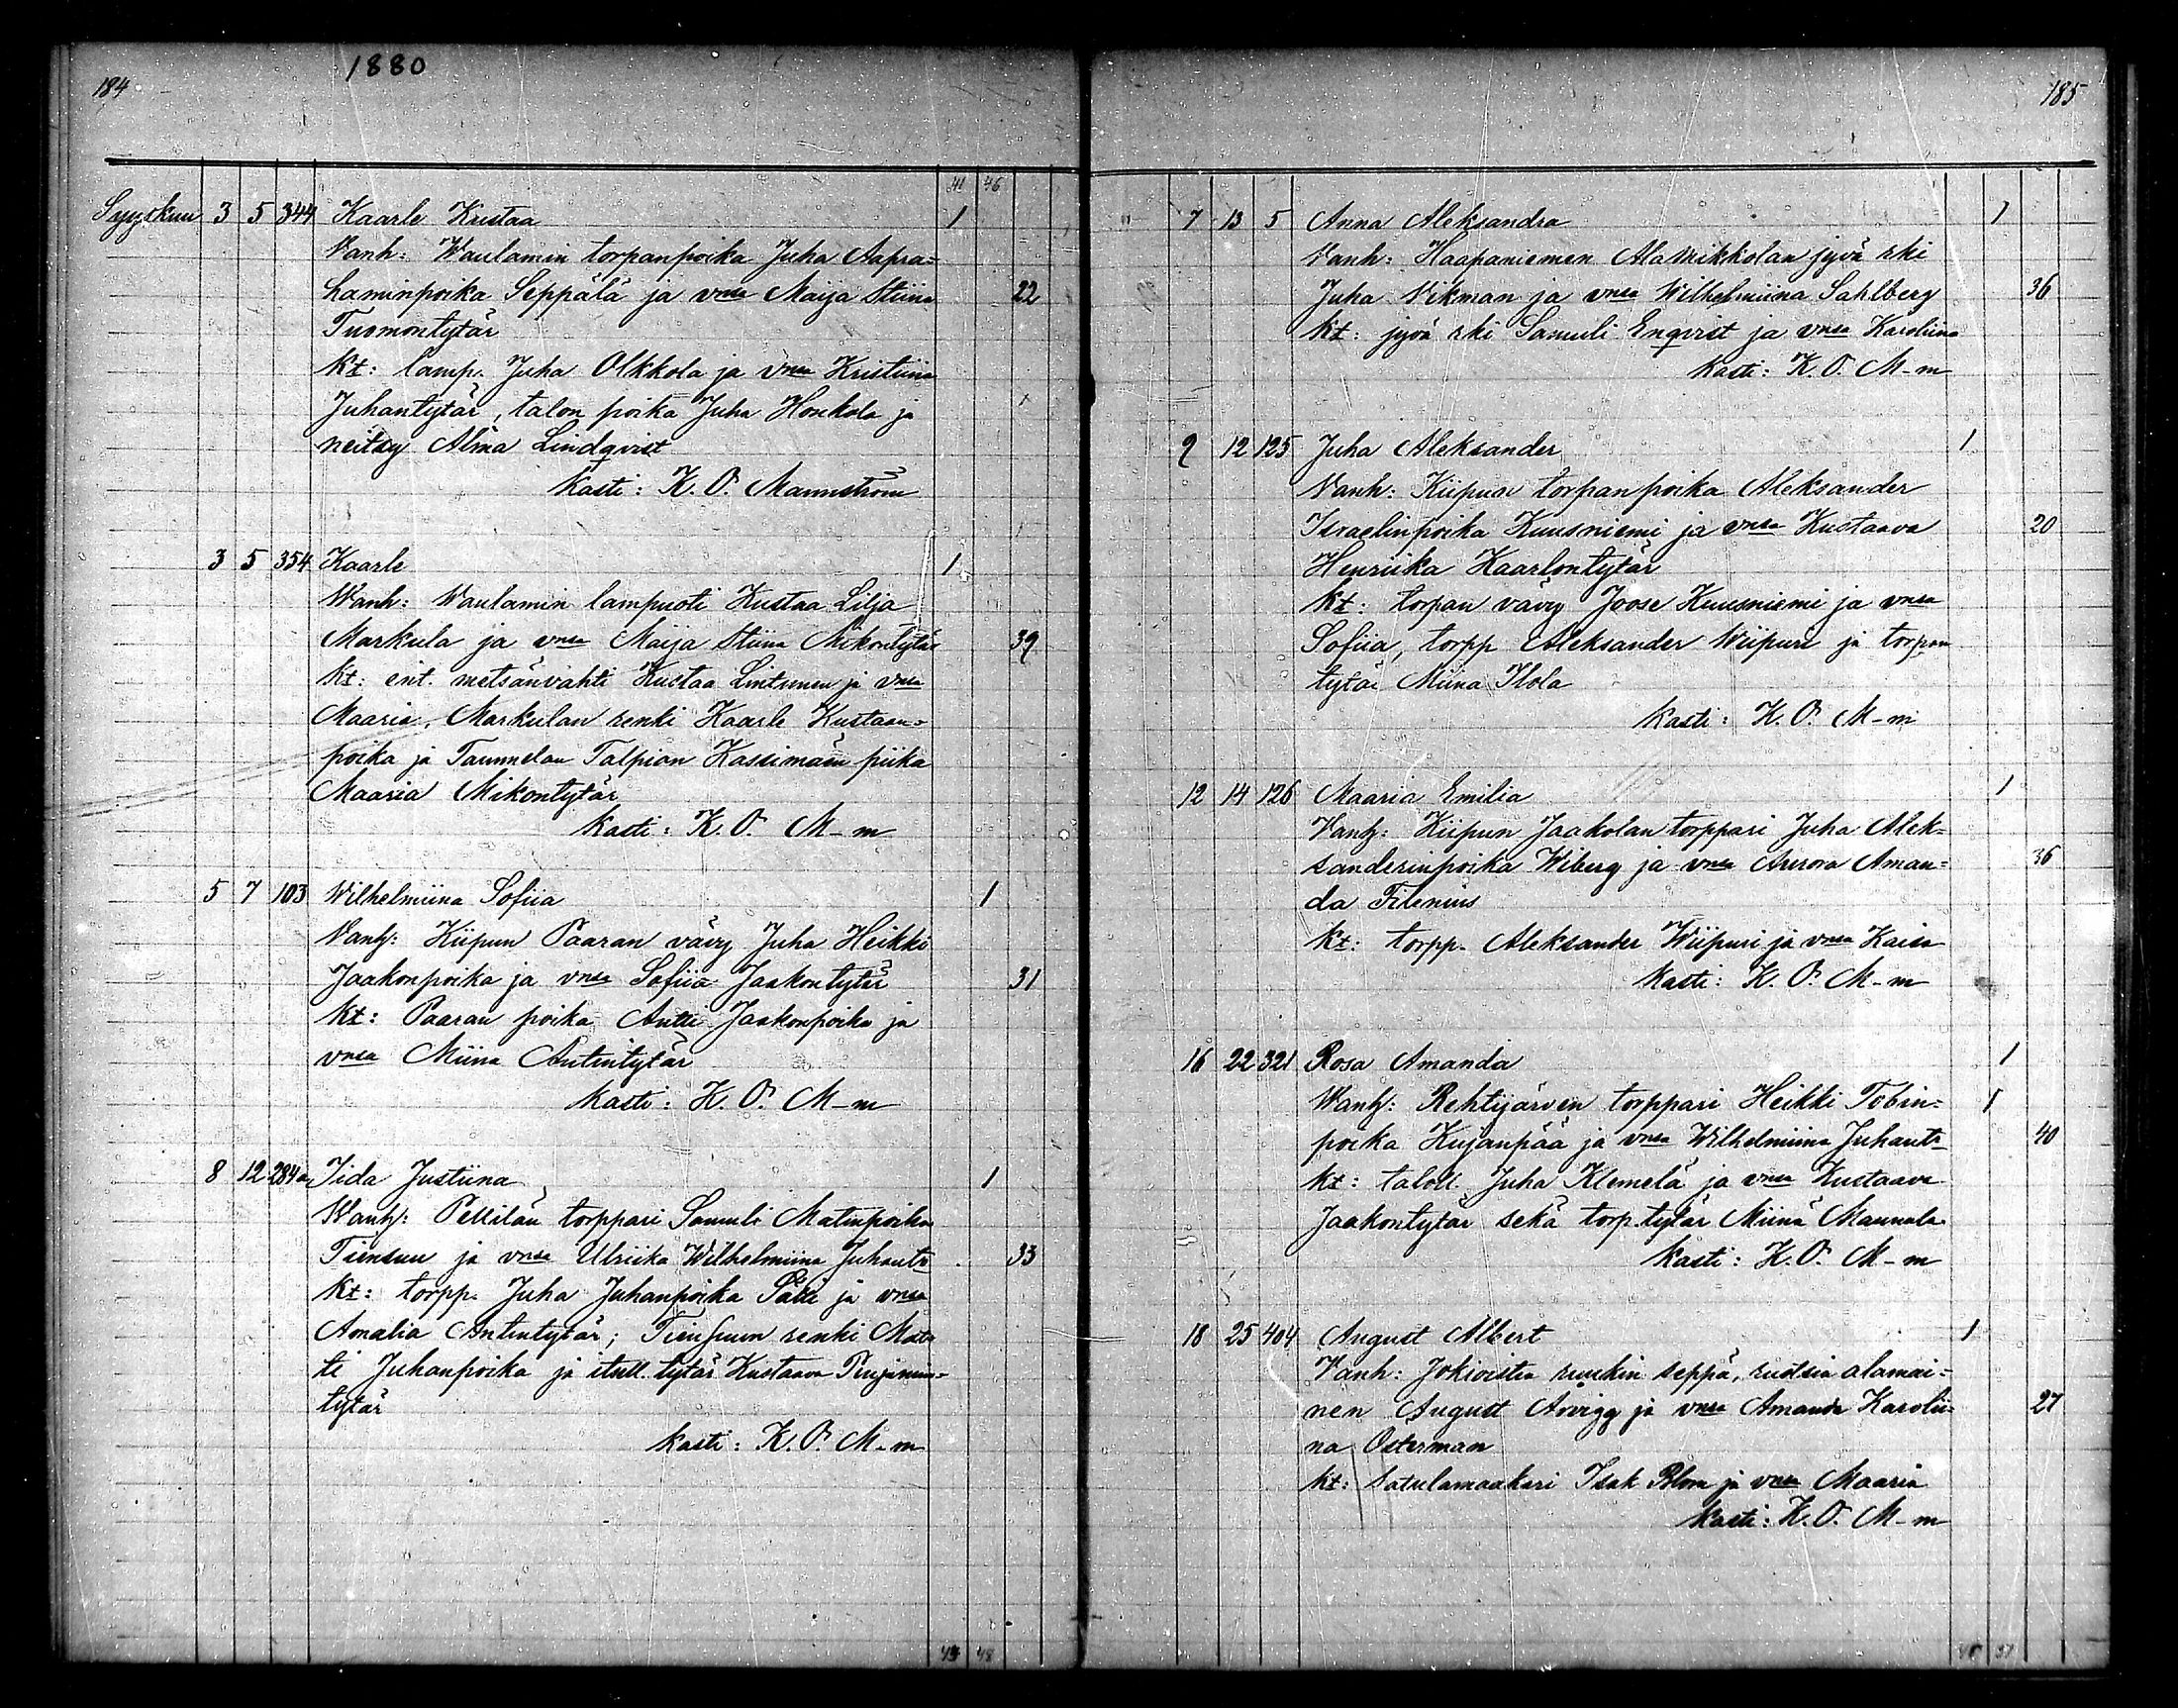 1880
184
41 46
Syyskuu 3 5 344 Kaarle Kustaa 1
Vanh: Waulamin torpanpoika Juha Aapra=
haminpoika Seppälä ja vnsa Maija Stiina 22
Tuomontytär
Kt: lamp. Juha Olkkola ja vnsa Kristiina
Juhantytär, talon poika Juha Honkola ja
neitsy Alma Lindqvist
Kasti: K. O. Mannström
3 5 354 Kaarle 1
Wanh: Waulamin lampuoti Kustaa Lilja
Markula ja vnsa Maija Stiina Mikontytär 39
Kt: ent. metsänvahti Kustaa Lintunen ja vnsa
Maaria, Markulan renki Kaarle Kustaan=
poika ja Tammelan Talpian Kassimäen piika
Maaria Mikontytär
Kasti: K. O. M-m
5 7 103 Wilhelmiina Sofiia 1
Vanh: Kiipun Paaran vävy Juha Heikki
Jaakonpoika ja vnsa Sofiia Jaakontytär 31
Kt: Paaran poika Antti Jaakonpoika ja
vnsa Miina Antintytär
Kasti: K. O. M-m
8 12 284a Iida Justiina 1
Wanh: Pellilän torppari Samuli Matinpoika
Tiensuu ja vnsa Ulriika Wilhelmiina Juhantr 33
Kt: torpp. Juha Juhanpoika Sälli ja vnsa
Amalia Antintytär; Tiensuun renki Mat=
ti Juhanpoika ja itsell. tytär Kustaava Penjamin=
tytär
Kasti: K. O. M-m
48
185
7 13 5 Anna Aleksandra 1
Vanh: Haapaniemen Alamikkolan jyvä rki
Juha Vikman ja vnsa Wilhelmiina Sahlberg 36
Kt: jyvä rki Samuli Enqvist ja vnsa Karoliina
Kasti: K. O. M-m
2 12 125 Juha Aleksander 1
Vanh: Kiipun torpanpoika Aleksander
Israelinpoika Kuusniemi ja vnsa Kustaava 20
Henriika Kaarlontytär
Kt: torpan vävy Joose Kuusniemi ja vnsa
Sofiia, torpp Aleksander Wiipuri ja torpan
tytär Miina Ilola
Kasti: K. O. M-m
12 14 126 Maaria Emilia 1
Vanh: Kiipun Jaakolan torppari Juha Alek=
sanderinpoika Wiberg ja vnsa Aurora Aman= 36
da Filenius
Kt: torpp. Aleksander Wiipuri ja vnsa Kaisa
Kasti: K. O. M-m
16 22 321 Rosa Amanda 1
Wanh: Rehtijärven torppari Heikki Tobin=
poika Kujanpää ja vnsa Wilhelmiina Juhantr 40
Kt: taloll. Juha Klemelä ja vnsa Kustaava
Jaakontytär sekä torp. tytär Miina Mannala
Kasti: K. O. M-m
18 25 404 August Albert 1
Vanh: Jokioisten ruukin seppä, ruotsin alamai=
nen August Arvigg ja vnsa Amanda Karolii= 27
na Osterman
Kt: satulamaakari Isak Blom ja vnsa Maaria
Kasti: K. O. M-m